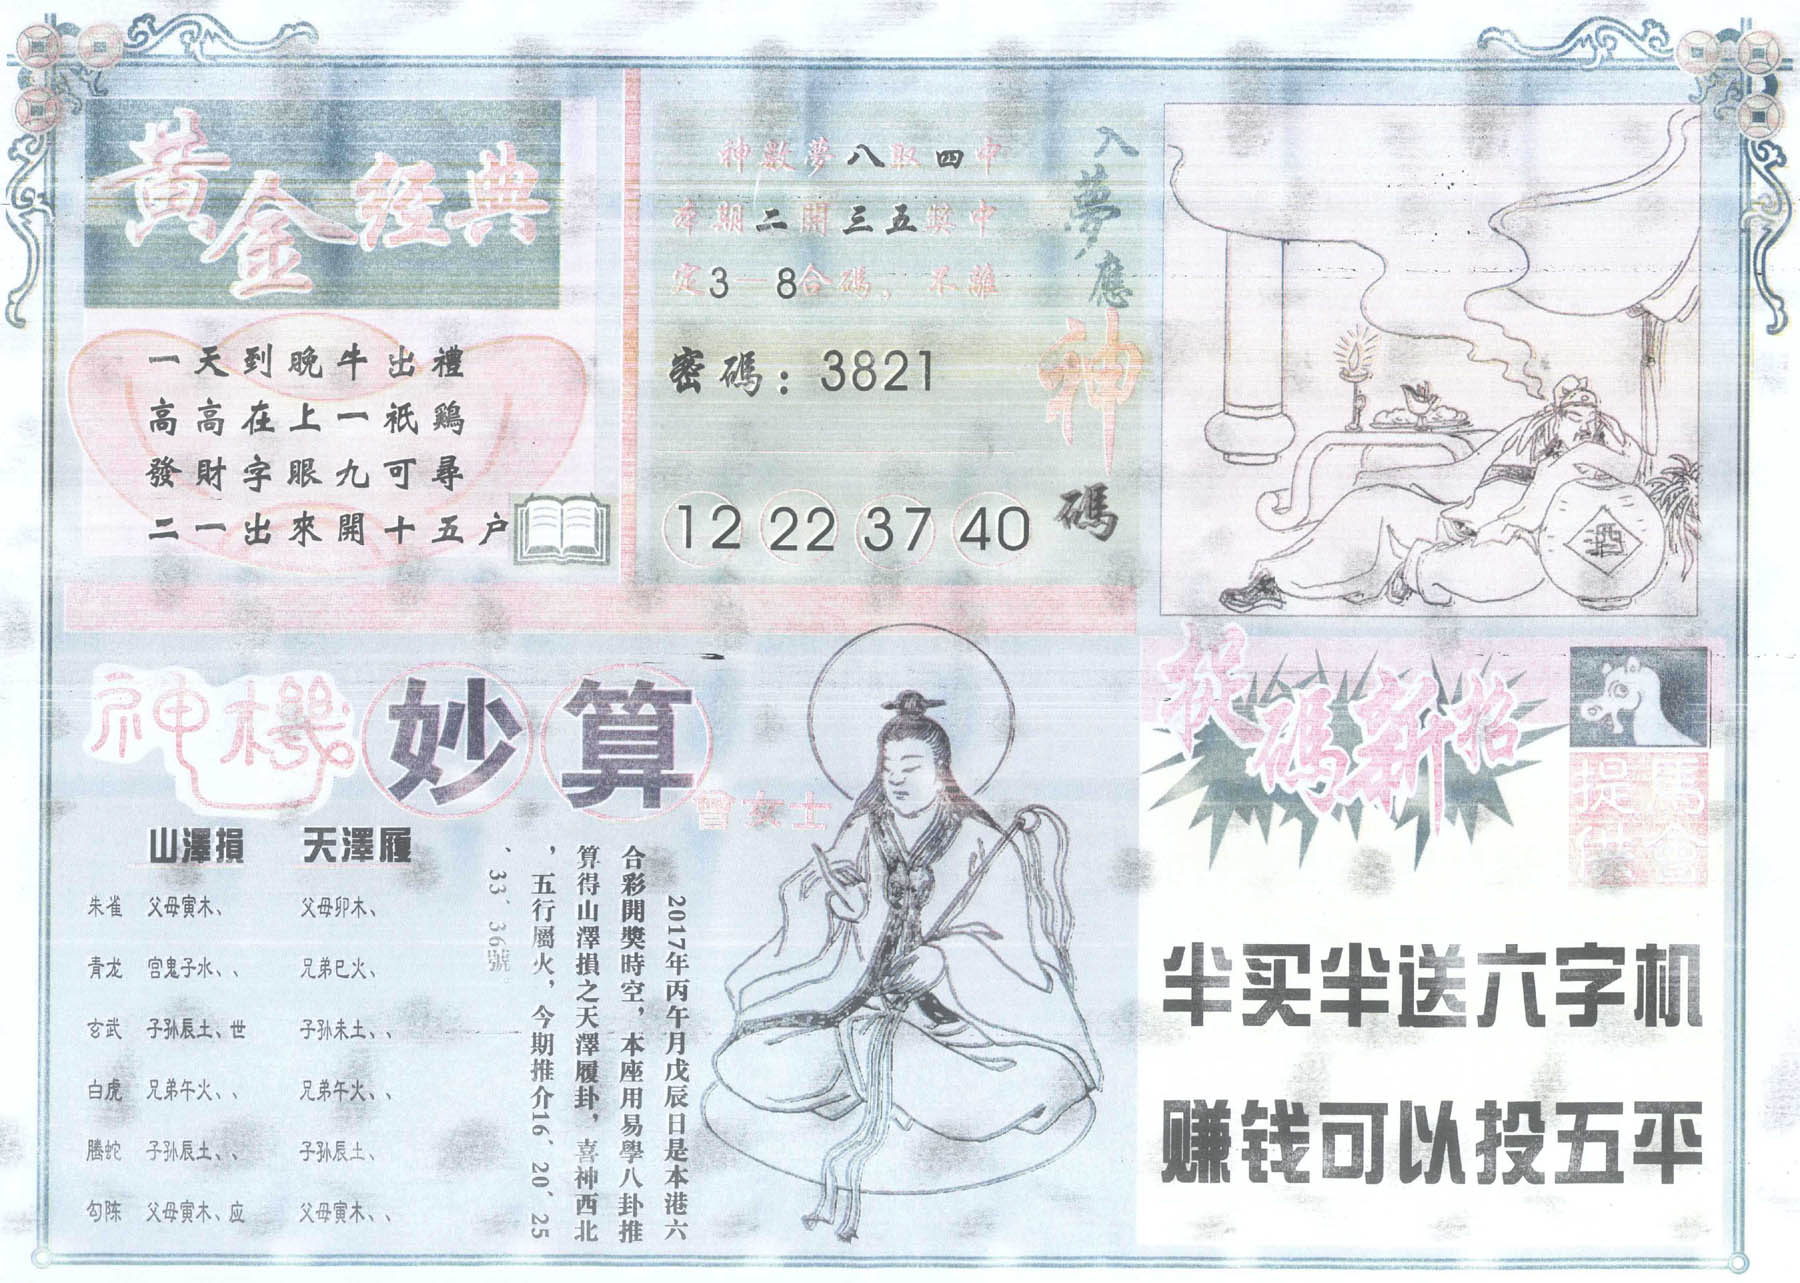 黃金經典
一天到晚牛出禮
高高在上一祇鷄
發財字眼九可尋
二一出來開十五户
神數夢八取四中
本期二開三五獎中
定3—8合碼，不離
密碼：3821
12 22 37 40
入夢應神碼
酒
神機妙算
曾女士
山澤損 天澤履
朱雀 父母寅木、 父母卯木、
青龙 官鬼子水、、 兄弟巳火、
玄武 子孙辰土、世 子孙未土、、
白虎 兄弟午火、、 兄弟午火、、
腾蛇 子孙辰土、、 子孙辰土、
勾陈 父母寅木、应 父母寅木、、
2017年丙午月戊辰日是本港六
合彩開獎時空，本座用易學八卦推
算得山澤損之天澤履卦，喜神西北
，五行屬火，今期推介16、20、25
、33、36號。
捉碼新招
馬會
提供
半买半送六字机
赚钱可以投五平